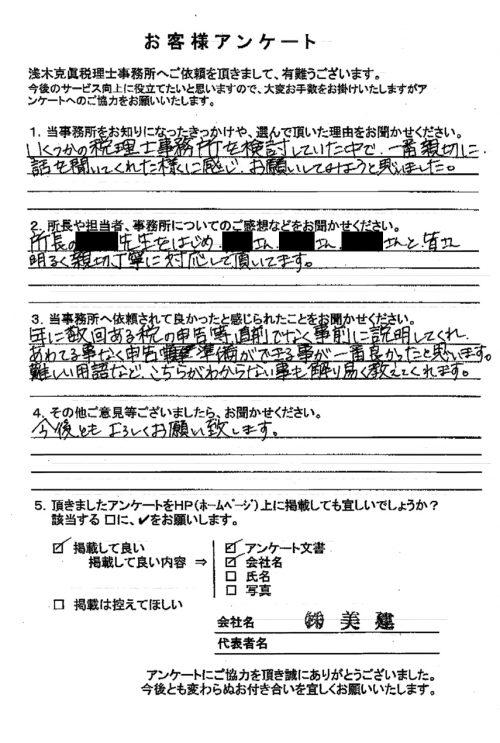 お客様アンケート
浅木克眞税理士事務所へご依頼を頂きまして、有難うございます。
今後のサービス向上に役立てたいと思いますので、大変お手数をお掛けいたしますがア
ンケートへのご協力をお願いいたします。
1. 当事務所をお知りになったきっかけや、選んで頂いた理由をお聞かせください。
いくつかの税理士事務所を検討していた中で、一番親切に
話を聞いてくれた様に感じ、お願いしてみようと思いました。
2. 所長や担当者、事務所についてのご感想などをお聞かせください。
所長の 先生をはじめ、 さん、 さん さんと、皆さん
明るく親切丁寧に対応して頂いてます。
3. 当事務所へ依頼されて良かったと感じられたことをお聞かせください。
年に数回ある税の申告等、直前でなく事前に説明してくれ、
あわてる事なく申告準備ができる事が一番良かったと思います。
難しい用語など、こちらがわからない事も解り易く教えてくれます。
4. その他ご意見等ございましたら、お聞かせください。
今後ともよろしくお願い致します。
5. 頂きましたアンケートをHP(ホームページ)上に掲載しても宜しいでしょうか?
該当する □に、✔をお願いします。
☑ 掲載して良い
掲載して良い内容 ⇒
☑ アンケート文書
☑ 会社名
□ 氏名
□ 写真
□ 掲載は控えてほしい
会社名 ㈱ 美建
代表者名
アンケートにご協力を頂き誠にありがとうございました。
今後とも変わらぬお付き合いを宜しくお願いいたします。